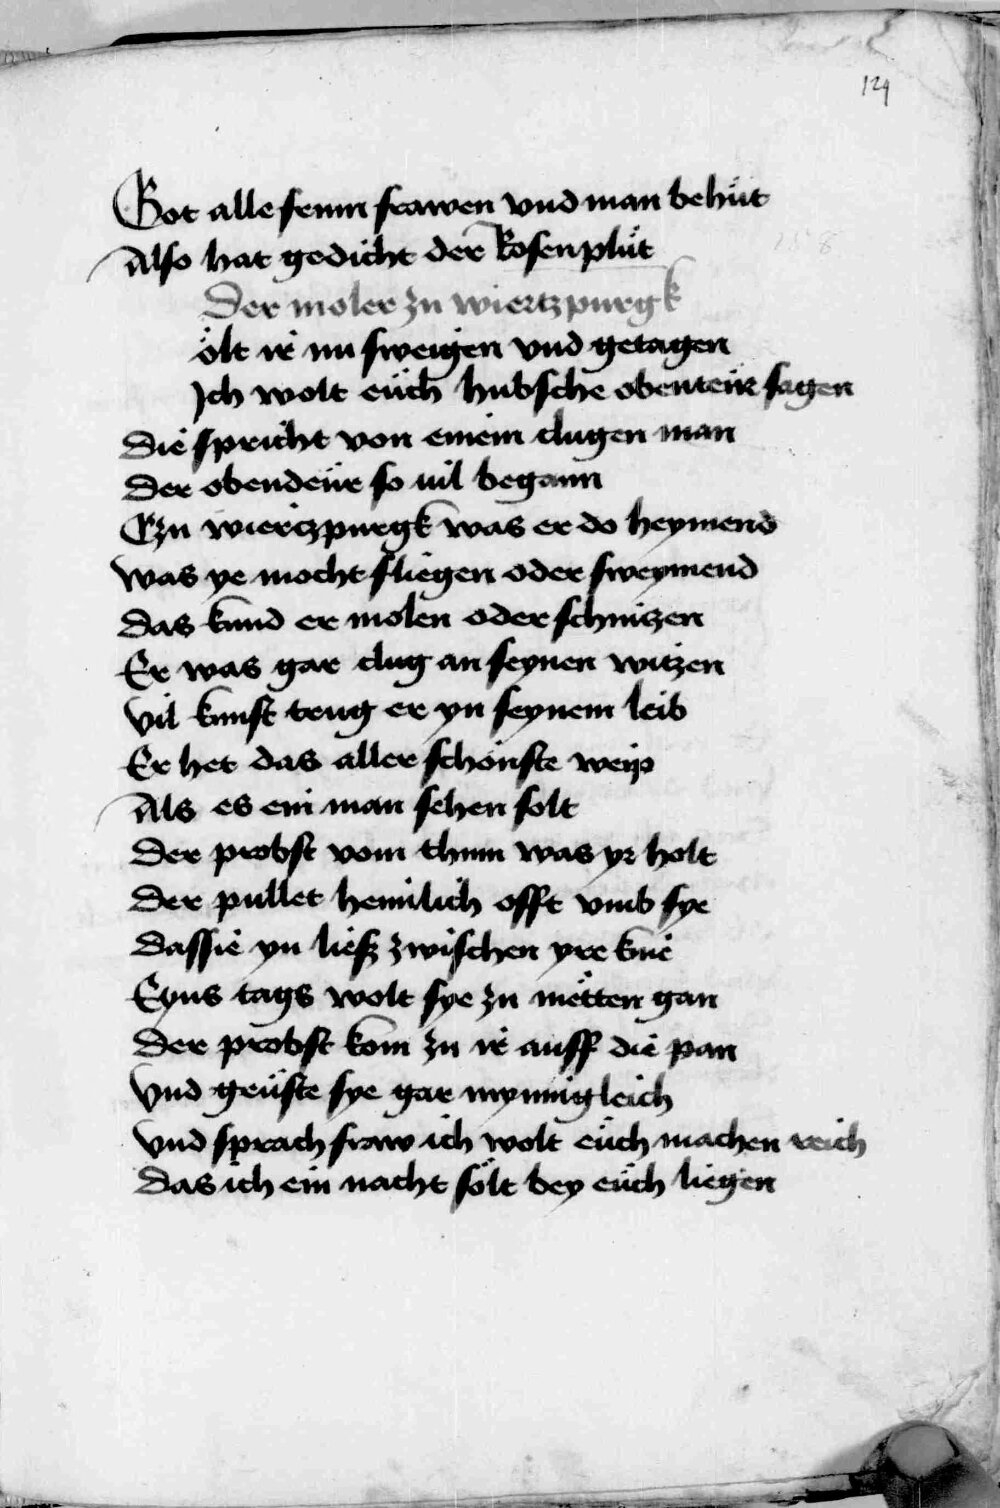 124
Got alle femin frawen vnd man behüt
Also hat gedicht der Rosenplüt
Der moler zu wiertzpurgk
ölt ir nu sweigen vnd getagen
Ich wolt eüch hubsche obenteür sagen
Die spricht von einem clugen man
Der obendeür so uil begann
Czu wiertzpurgk was er do heymend
was ye mocht fliegen oder sweymend
das kund er molen oder schnitzen
Er was gar clug an seynen witzen
vil kunst trug er yn seynem leib
Er het das aller schönste weip
Als es ein man sehen solt
Der probst vom thum was yr holt
Der pullet heimlich offt vmb sye
dassie yn ließ zwischen yre knie
Eyns tags wolt sye zu metten gan
Der probst kom zu ir auff die pan
vnd grüste sye gar mynnigleich
vnd sprach fraw ich wolt eüch machen reich
Das ich ein nacht sölt bey eüch liegen